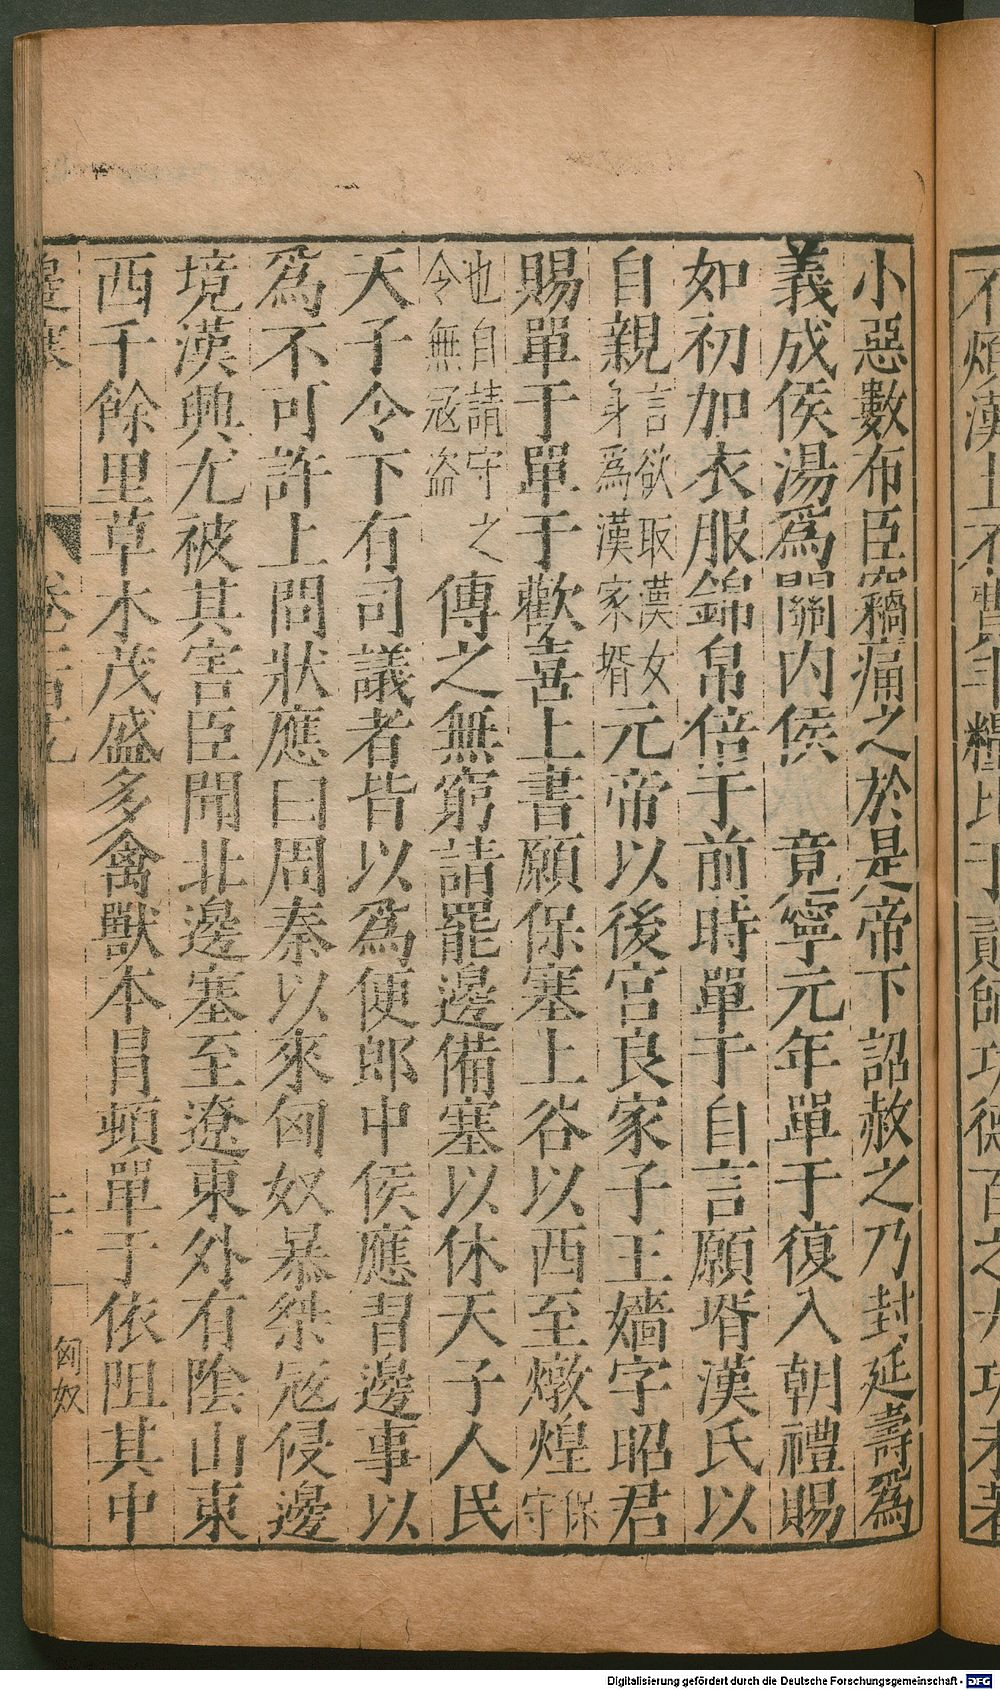 小惡數布臣竊痛之於是帝下詔赦之乃封延壽爲
義成侯湯爲關内侯 竟寧元年單于復入朝禮賜
如初加衣服錦帛倍于前時單于自言願壻漢氏以
自親言欲取漢女身爲漢家壻元帝以後宫良家子王嬙字昭君
賜單于單于歡喜上書願保塞上谷以西至燉煌保守
也自請守之令無寇盗傳之無窮請罷邊備塞以休天子人民
天子令下有司議者皆以爲便郎中侯應習邊事以
爲不可許上問狀應曰周秦以來匈奴暴桀寇侵邊
境漢興尤被其害臣聞北邊塞至遼東外有陰山東
西千餘里草木茂盛多禽獸本冒頓單于依阻其中
邊塞
匈奴
Digitalisierung gefördert durch die Deutsche Forschungsgemeinschaft - DFG